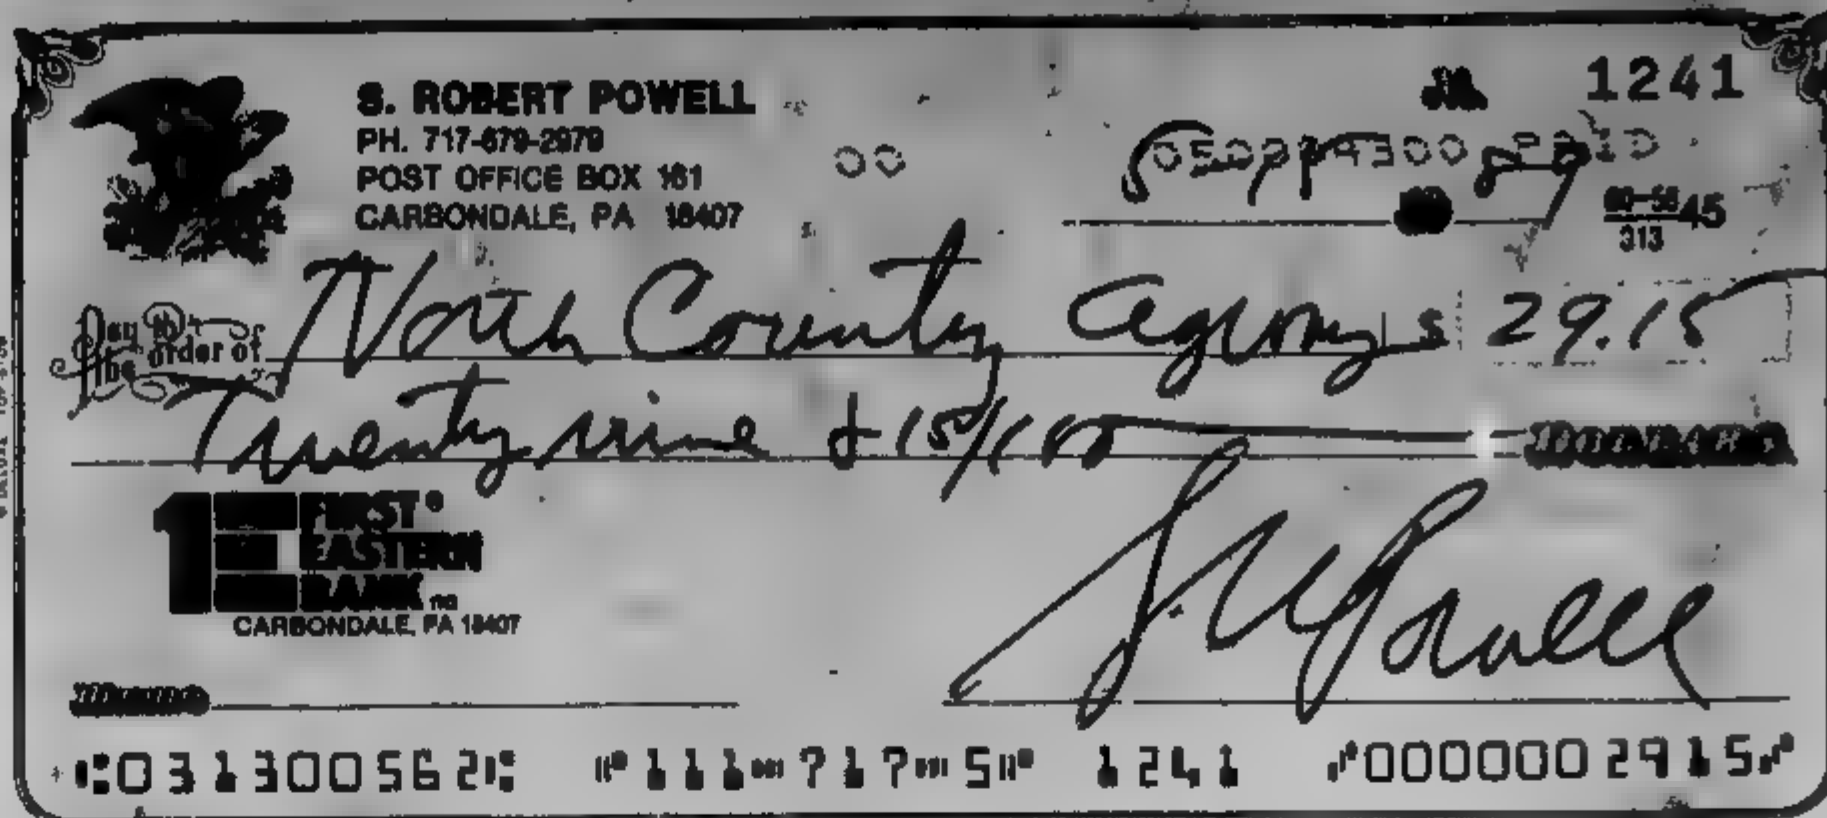 S. ROBERT POWELL
PH. 717-679-2979
POST OFFICE BOX 161
CARBONDALE, PA 18407
1241
00
60-56 45
313
Pay to the order of North County Agency $ 29.15
Twenty nine & 15/100 DOLLARS
1 FIRST EASTERN BANK na
CARBONDALE, PA 18407
S R Powell
031300562 111 717 5 1241 0000002915